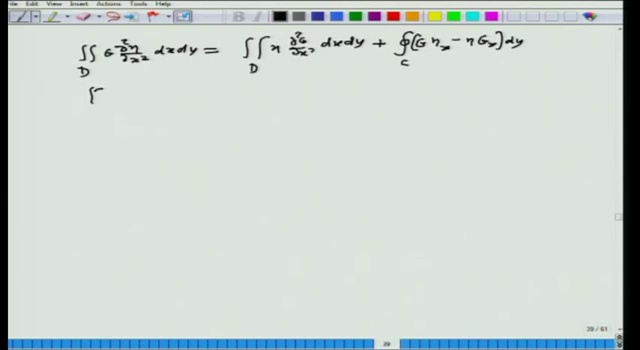 File Edit View Insert Actions Tools Help
∬_D G ∂²η/∂x² dxdy = ∬_D η ∂²G/∂x² dxdy + ∮_C (G η_x − η G_x) dy
∫
39